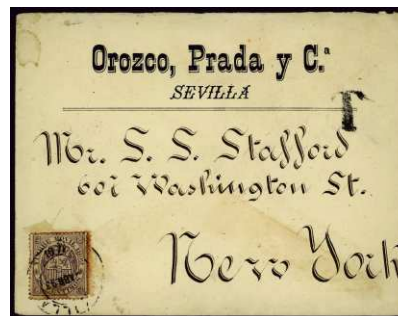 Orozco, Prada y C.ª
SEVILLA
T
Mr. S. S. Stafford
601 Washington St.
New York